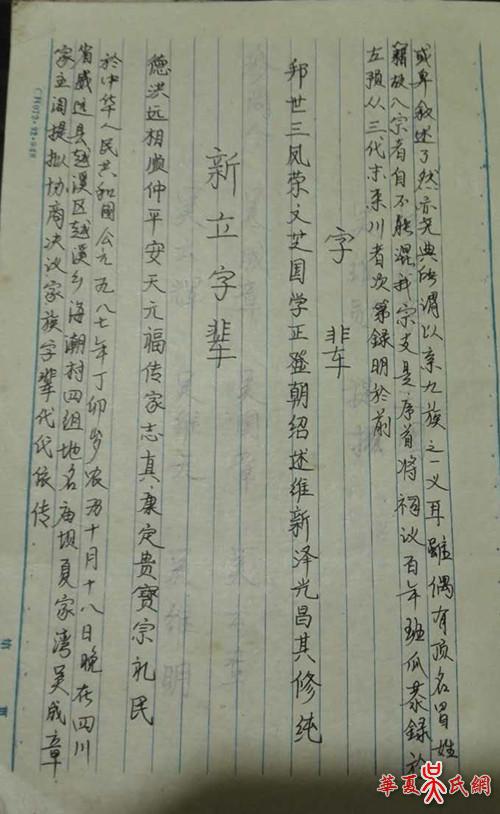 或卑叙述了然亦尧典所谓以亲九族之一义耳虽偶有顶名冒姓
籍故八宗者自不能混我宗支是序首将 议百年班瓜恭録於
左预从三代木来川者次第録明於前
字辈
邦世三凤荣文芝国学正登朝绍述维新泽光昌其修纯
新立字辈
德洪远相顺仲平安天元福传家志真康定贵寶宗礼民
於中华人民共和國公元一九八七年丁卯岁农历十月十八日晚在四川
省威远县越溪区越溪乡海潮村四组地名庙坝夏家湾吴成章
家主阅提拟协商决议家族字辈代代依传
華夏吴氏網